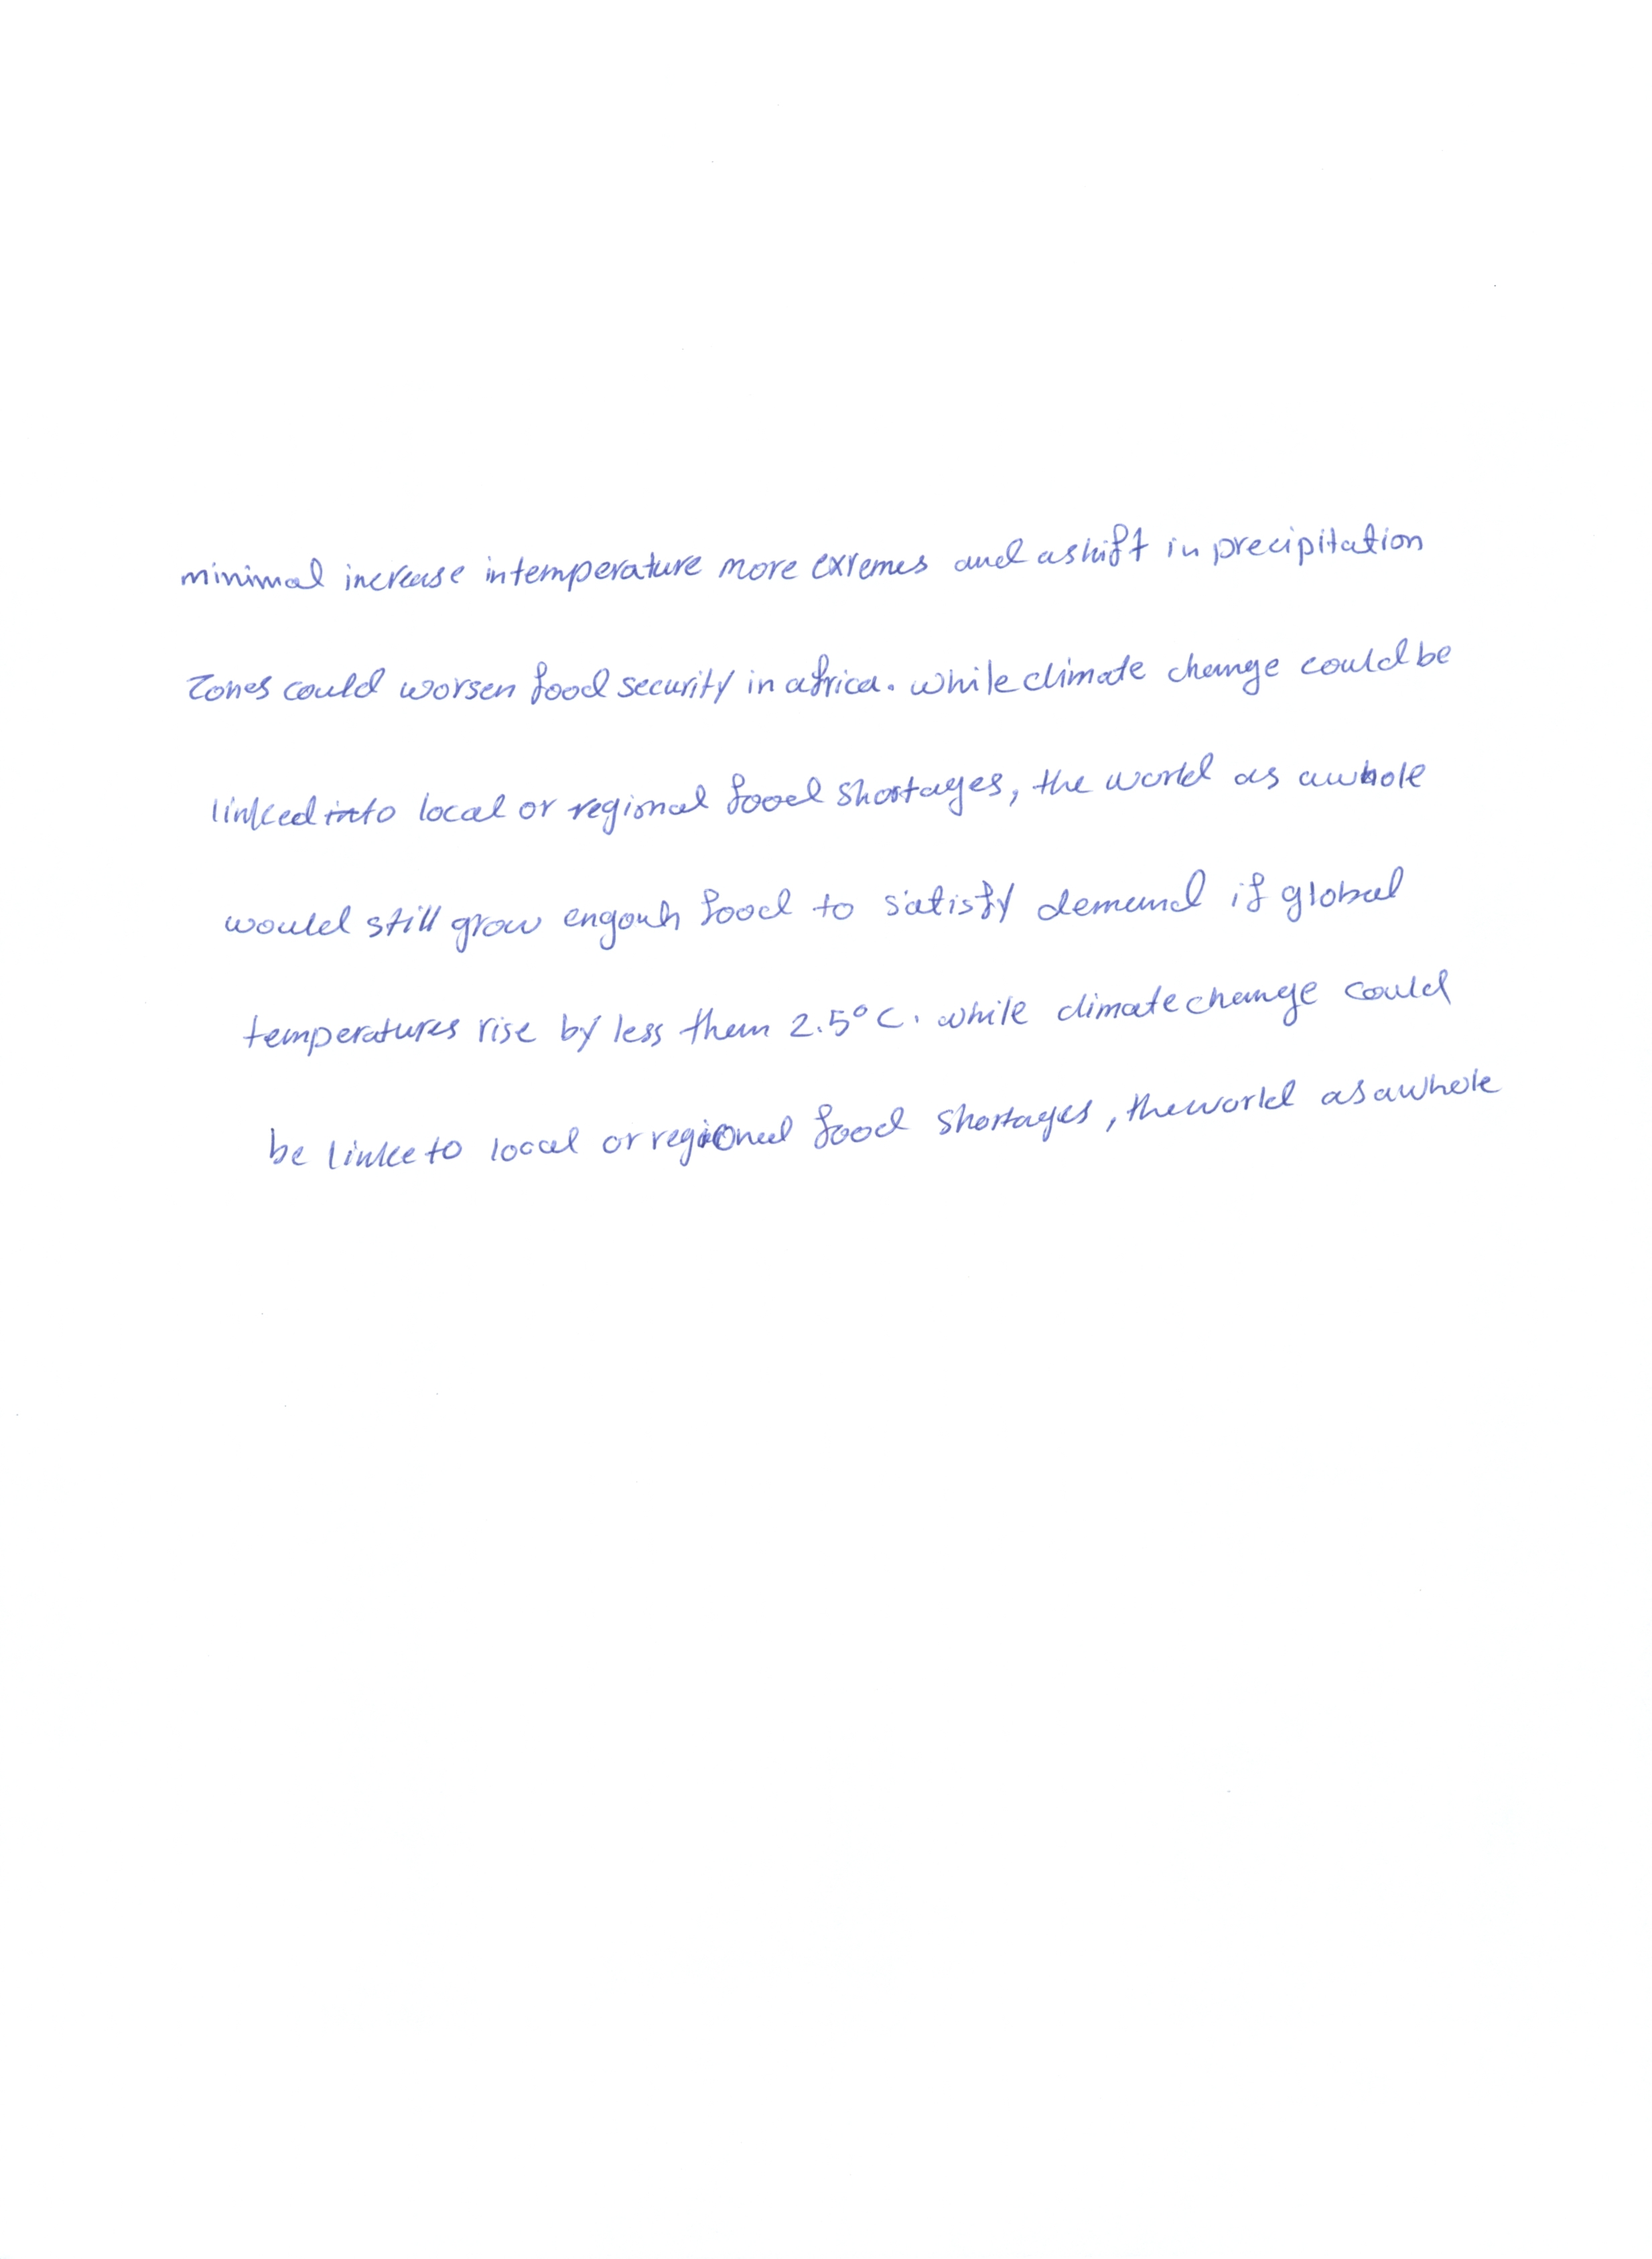 minimal increase in temperature more exremes and a shift in precipitation
zones could worsen food security in africa. while climate change could be
linked to local or regional food shortages, the world as a whole
would still grow engouh food to satisfy demand if global
temperatures rise by less than 2.5°C. while climate change could
be linke to local or regional food shortages, the world as a whole